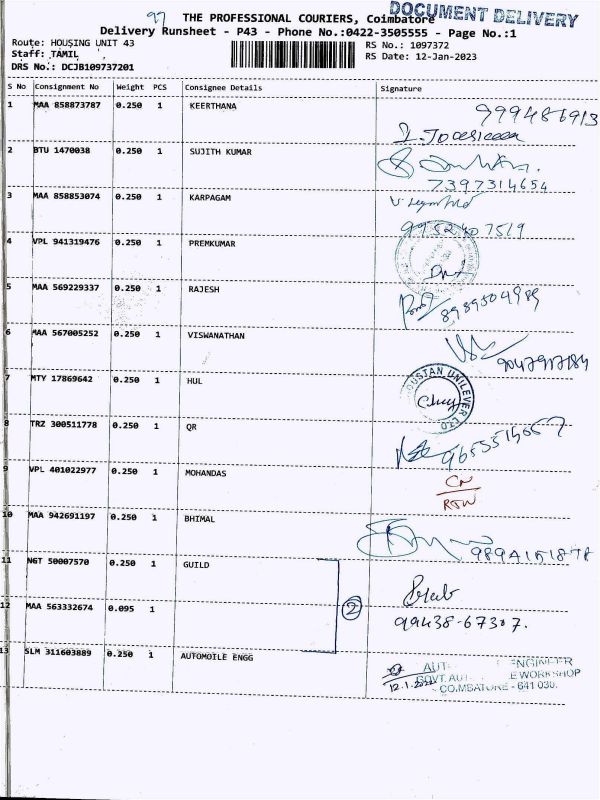 97
THE PROFESSIONAL COURIERS, Coimbatore
DOCUMENT DELIVERY
Delivery Runsheet - P43 - Phone No.:0422-3505555 - Page No.:1
Route: HOUSING UNIT 43
RS No.: 1097372
Staff: TAMIL
RS Date: 12-Jan-2023
DRS No.: DCJB109737201
S No Consignment No Weight PCS Consignee Details Signature
1 MAA 858873787 0.250 1 KEERTHANA
2 BTU 1470038 0.250 1 SUJITH KUMAR
7397314654
3 MAA 858853074 0.250 1 KARPAGAM
9952407519
4 VPL 941319476 0.250 1 PREMKUMAR
5 MAA 569229337 0.250 1 RAJESH
8939504989
6 MAA 567005252 0.250 1 VISWANATHAN
7 MTY 17869642 0.250 1 HUL
USTAN UNILEVER LTD
8 TRZ 300511778 0.250 1 QR
9 VPL 401022977 0.250 1 MOHANDAS
10 MAA 942691197 0.250 1 BHIMAL
11 NGT 50007570 0.250 1 GUILD
2
12 MAA 563332674 0.095 1
99438-67307.
13 SLM 311603889 0.250 1 AUTOMOILE ENGG
AUT ENGINEER
GOVT. AUT E WORKSHOP
COIMBATORE - 641 030.